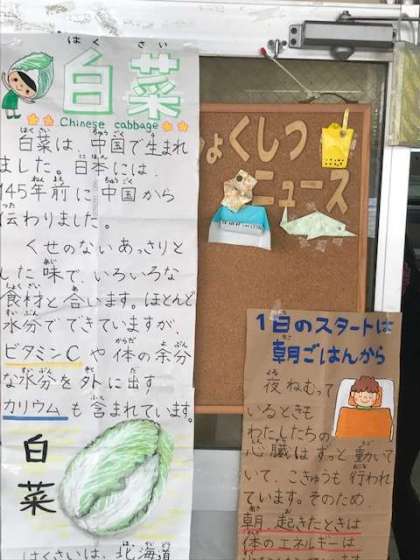 はくさい
白菜
Chinese cabbage
白菜は、中国で生まれ
ました。日本には、
145年前に中国から
伝わりました。
くせのないあっさりと
した味で、いろいろな
食材と合います。ほとんど
水分でできていますが、
ビタミンCや体の余分
な水分を外に出す
カリウムも含まれています。
白菜
はくさいは、北海道
ょくしつ
ニュース
1日のスタートは
朝ごはんから
夜ねむって
いるときも
わたしたちの
心臓はずっと動いて
いて、こきゅうも行われ
ています。そのため、
朝、起きたときは
体のエネルギーは